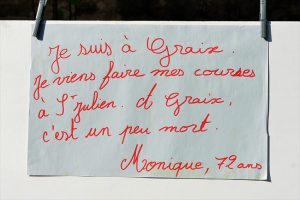 Je suis à Graix.
Je viens faire mes courses
à St Julien. A Graix,
c'est un peu mort.
Monique, 72 ans